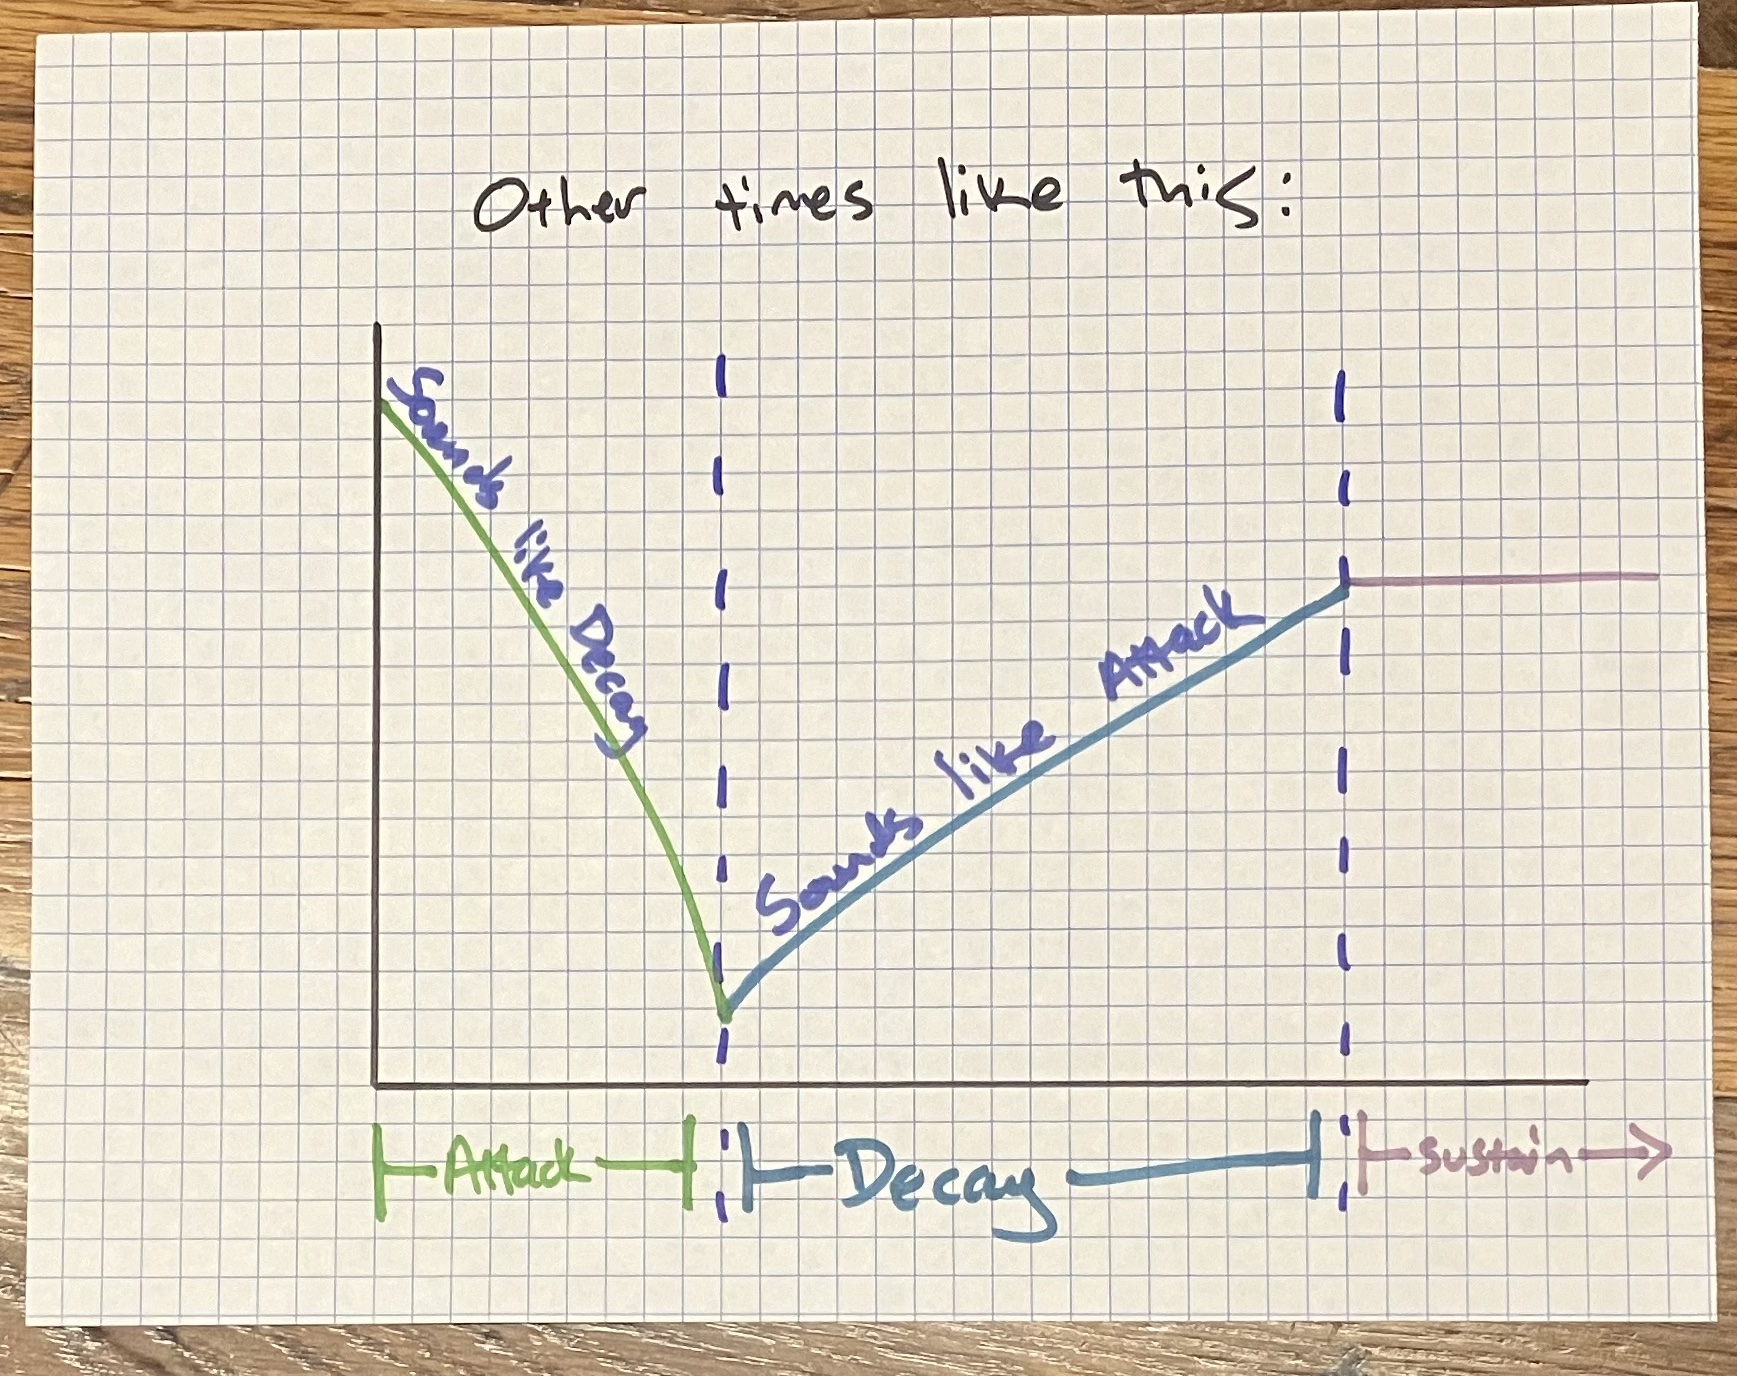 Other times like this:
Sounds like Decay
Sounds like Attack
Attack
Decay
Sustain